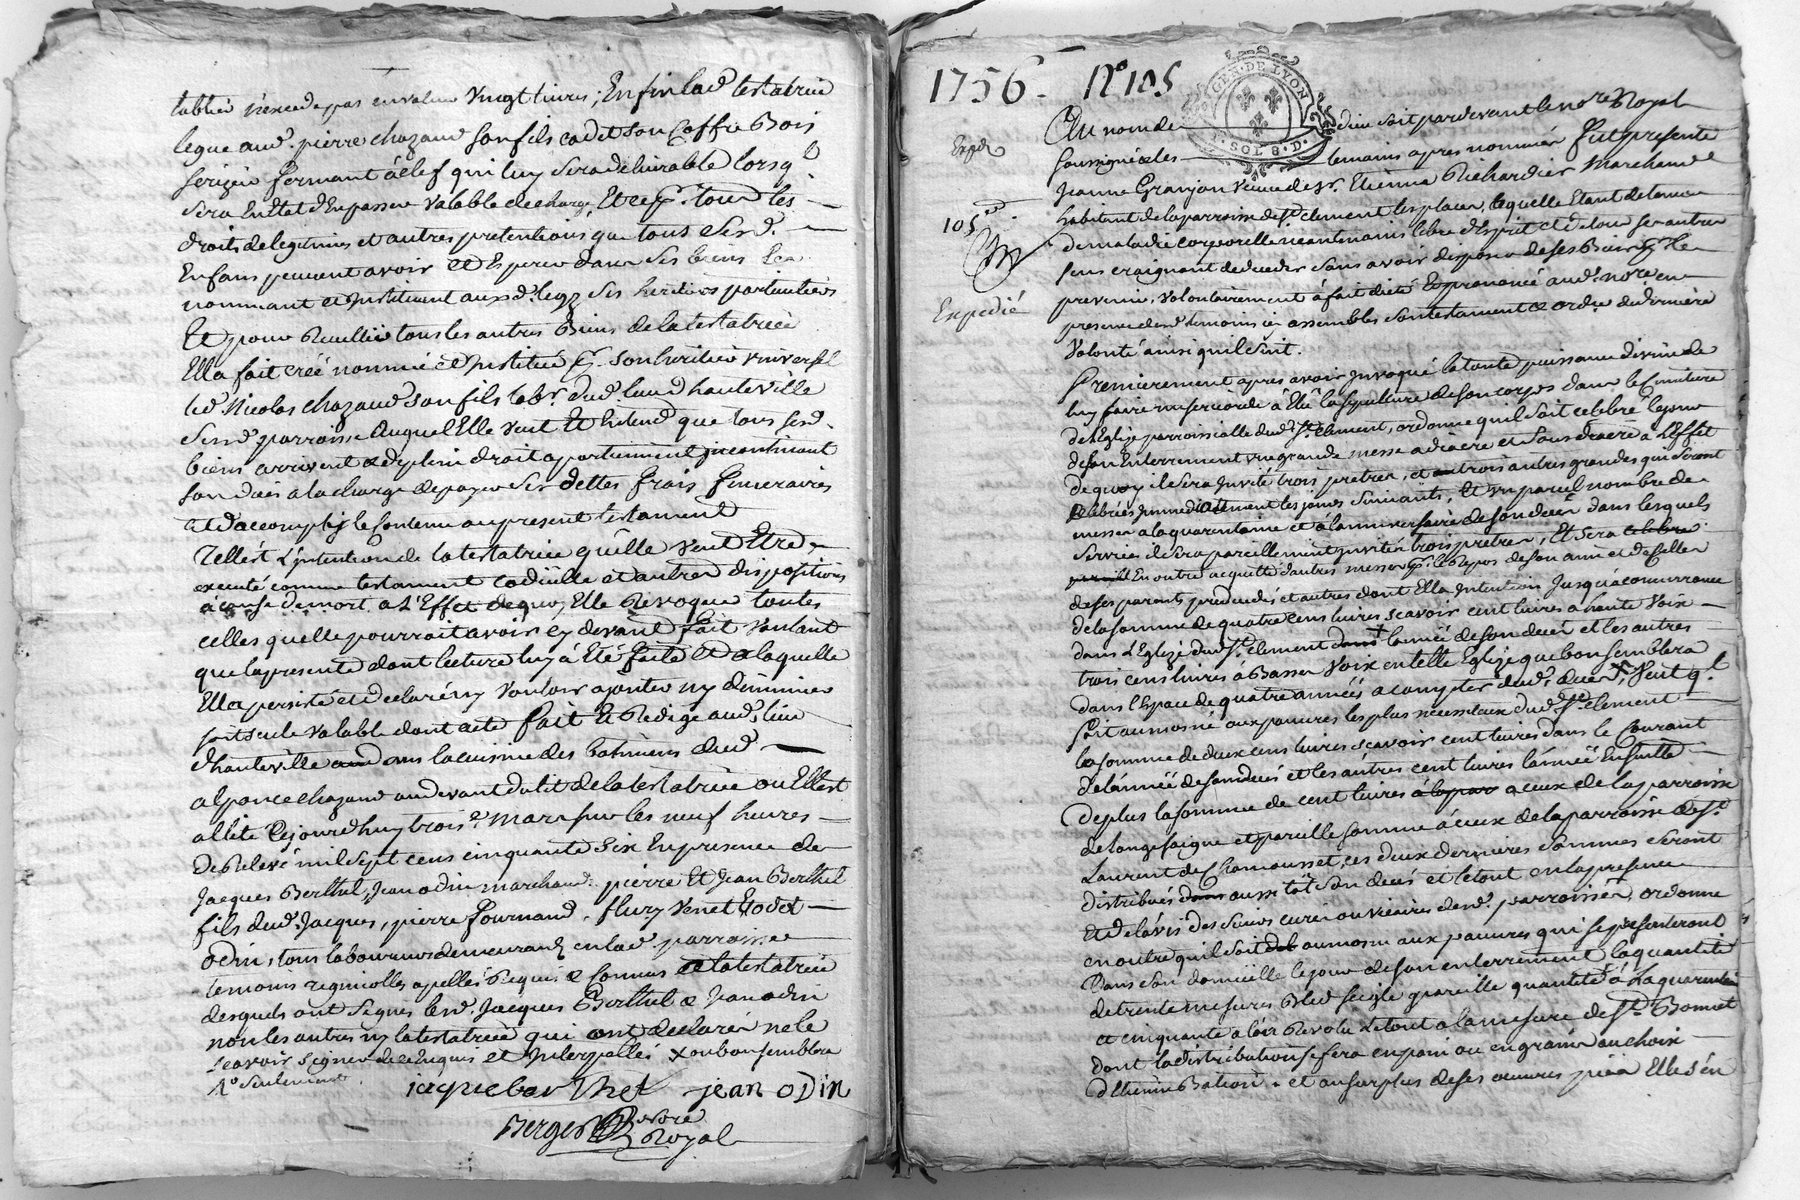 tablier n'excede pas en valeur vingt livres; Enfin lad. testatrice
legue aud. pierre chazaud son fils cadet son Coffre Bois
serizier fermant à clef qui luy sera delivrable lorsq.l
sera En Etat d'En passer valable decharge, Et ce p.r tous les
droits de legitimes et autres pretentions que tous sesd.
Enfans peuvent avoir et Esperer dans ses biens les
nommant et Instituant auxd. legz ses heritiers particuliers
Et pour Recuillir tous les autres Biens de la testatrice
Ella fait créé nommé et Institué p.r son heritier universel
led. Nicolas chazaud son fils lab.r dud. lieud hauteville
susd. parroisse auquel Elle veut Et Entend que tous sesd.
biens arrivent & de plein droit apartiennent incontinant
son deces a la charge de payer ses dettes frais funeraires
et d'accomplir le Contenu au present testament
Telle est L'intention de la testatrice qu'elle veut Etre
executé comme testament codicille et autres dispositions
à cause de mort a L'Effet de quoy Elle Revoque toutes
celles quelle pourroit avoir cy devant fait voulant
que la presente dont lecture luy à Eté faite et a laquelle
Ella persisté et declaré ny vouloir ajouter ny diminuer
soit seule valable dont acte fait Et Redigé aud. lieu
d'hauteville dans la cuisine des batimens dud.
alponce chazaud au devant du lit de la testatrice ou Elle est
allité Cejourd'huy trois.e mars sur les neuf heures
de Relevé mil sept cens cinquante six En presence de
Jacques Berthet, Jean odin marchand. pierre Et Jean Berthet
fils dud. Jacques, pierre fournand, fleury Venet Et odet
odin, tous laboureurs demeurans en lad. parroisse
temoins requis & appellés & connus de la testatrice
desquels ont signés led. Jacques Berthet & Jean odin
non les autres ny la testatrice qui ont declarés ne le
scavoir signer de ce Enquis et Interpellés x ou bon semblera
jaque berthet jean ODIN
Berger Nore
Royal
1756. N° 105
GEN. DE LYON
SOL 8. D.
Expd
105
Expedié
Au nom de dieu soit pardevant le no.re Royal
soussigné et les temoins apres nommés fut presente
Jeanne Granjon veuve de s.r Etienne Richardier Marchand
habitant de la parroisse de S.t clement les places, laquelle Etant detenue
de maladie corporelle neantmoins libre d'Esprit et de tous ses autres
sens craignant de deceder sans avoir disposé de ses Biens p.r le
prevenir, volontairement à fait dicté Et prononcé aud. no.re en
presence desd. temoins icy assemblés son testament & ord.ce de derniere
volonté ainsi quil suit.
Premierement apres avoir Invoqué la toute puissance divine de
luy faire misericorde à Elû la sepulture de son corps dans le Cimitiere
de l'Eglise parroissialle dud. S.t Clement, ordonne quil soit celebré le jour
de son Enterrement une grande messe a diacre et sous diacre à L'effet
de quoy il sera Invité trois pretres, et trois autres grandes qui seront
celebrées Immediatement les jours suivants, Et un pareil nombre de
messes a la quarantaine et à l'anniversaire de son decès dans lesquels
services il sera pareillement Inviter trois pretres, Et sera celebré
En outre acquitté d'autres messes p.r le Repos de son ame et de celles
de ses parents predecedés et autres dont Ella Intention Jusqu'a concurrance
de la somme de quatre cens livres scavoir cent livres a haute Voix
dans L'Eglise dud. S.t Clement l'année de son decés et les autres
trois cens livres à Basse Voix en telle Eglise que bon semblera
dans l'Espace de quatre années a compter dud. decés x, Veut q.l
soit aumosné aux pauvres les plus necessiteux dud. S.t clement
la somme de deux cens livres scavoir cent livres dans le Courant
de l'année de son decés et les autres cent livres l'année Ensuitte
De plus la somme de cent livres à la par a ceux de la parroisse
de longesaigne et pareille somme à ceux de la parroisse de S.t
Laurent de Chamousset, ces deux dernieres sommes seront
distribués dans aussitôt son decés et le tout en la presence
Et de l'avis des sieurs curés ou vicaires desd. parroisses, ordonne
en outre qu'il soit aumosné aux pauvres qui se presenteront
Dans son domicille le jour de son enterrement la quantité
de trente mesures Bled seigle pareille quantité à La quarantaine
et cinquante a l'an Revolu Le tout a la mesure de S.t Bonnet
dont la distribution se fera en pain ou en graine au choix
d'Etienne Bation. et au surplus de ses œuvres pies Elle s'en